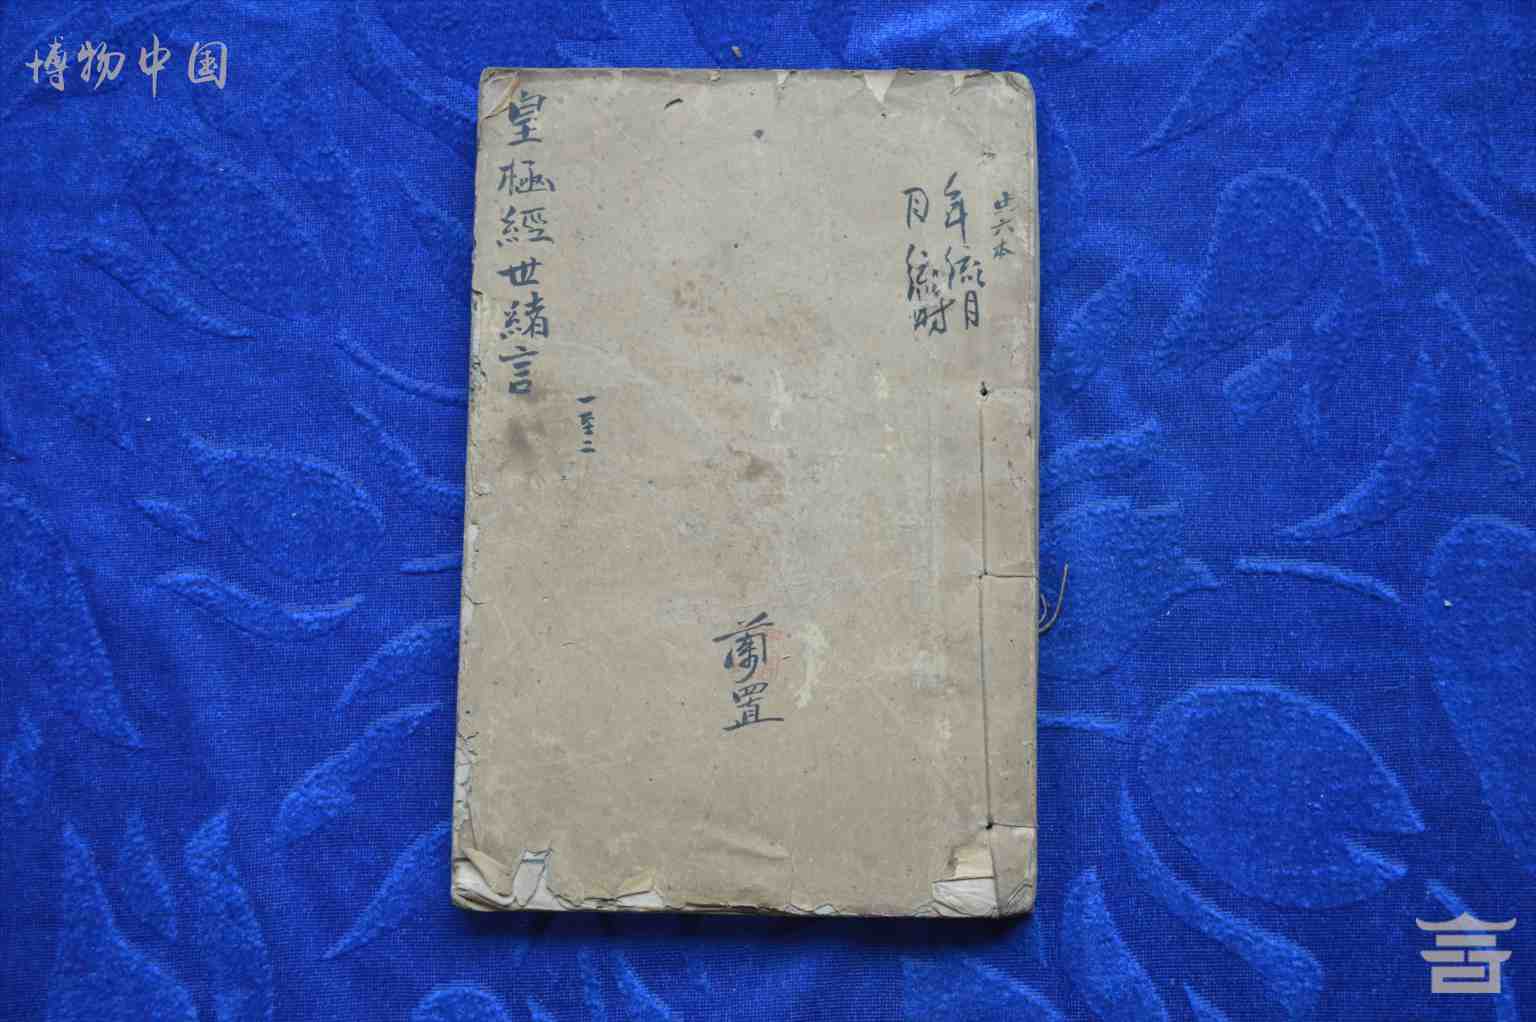 博物中国
共六本
年流月
月流时
皇極經世緒言
一至二
蘭置